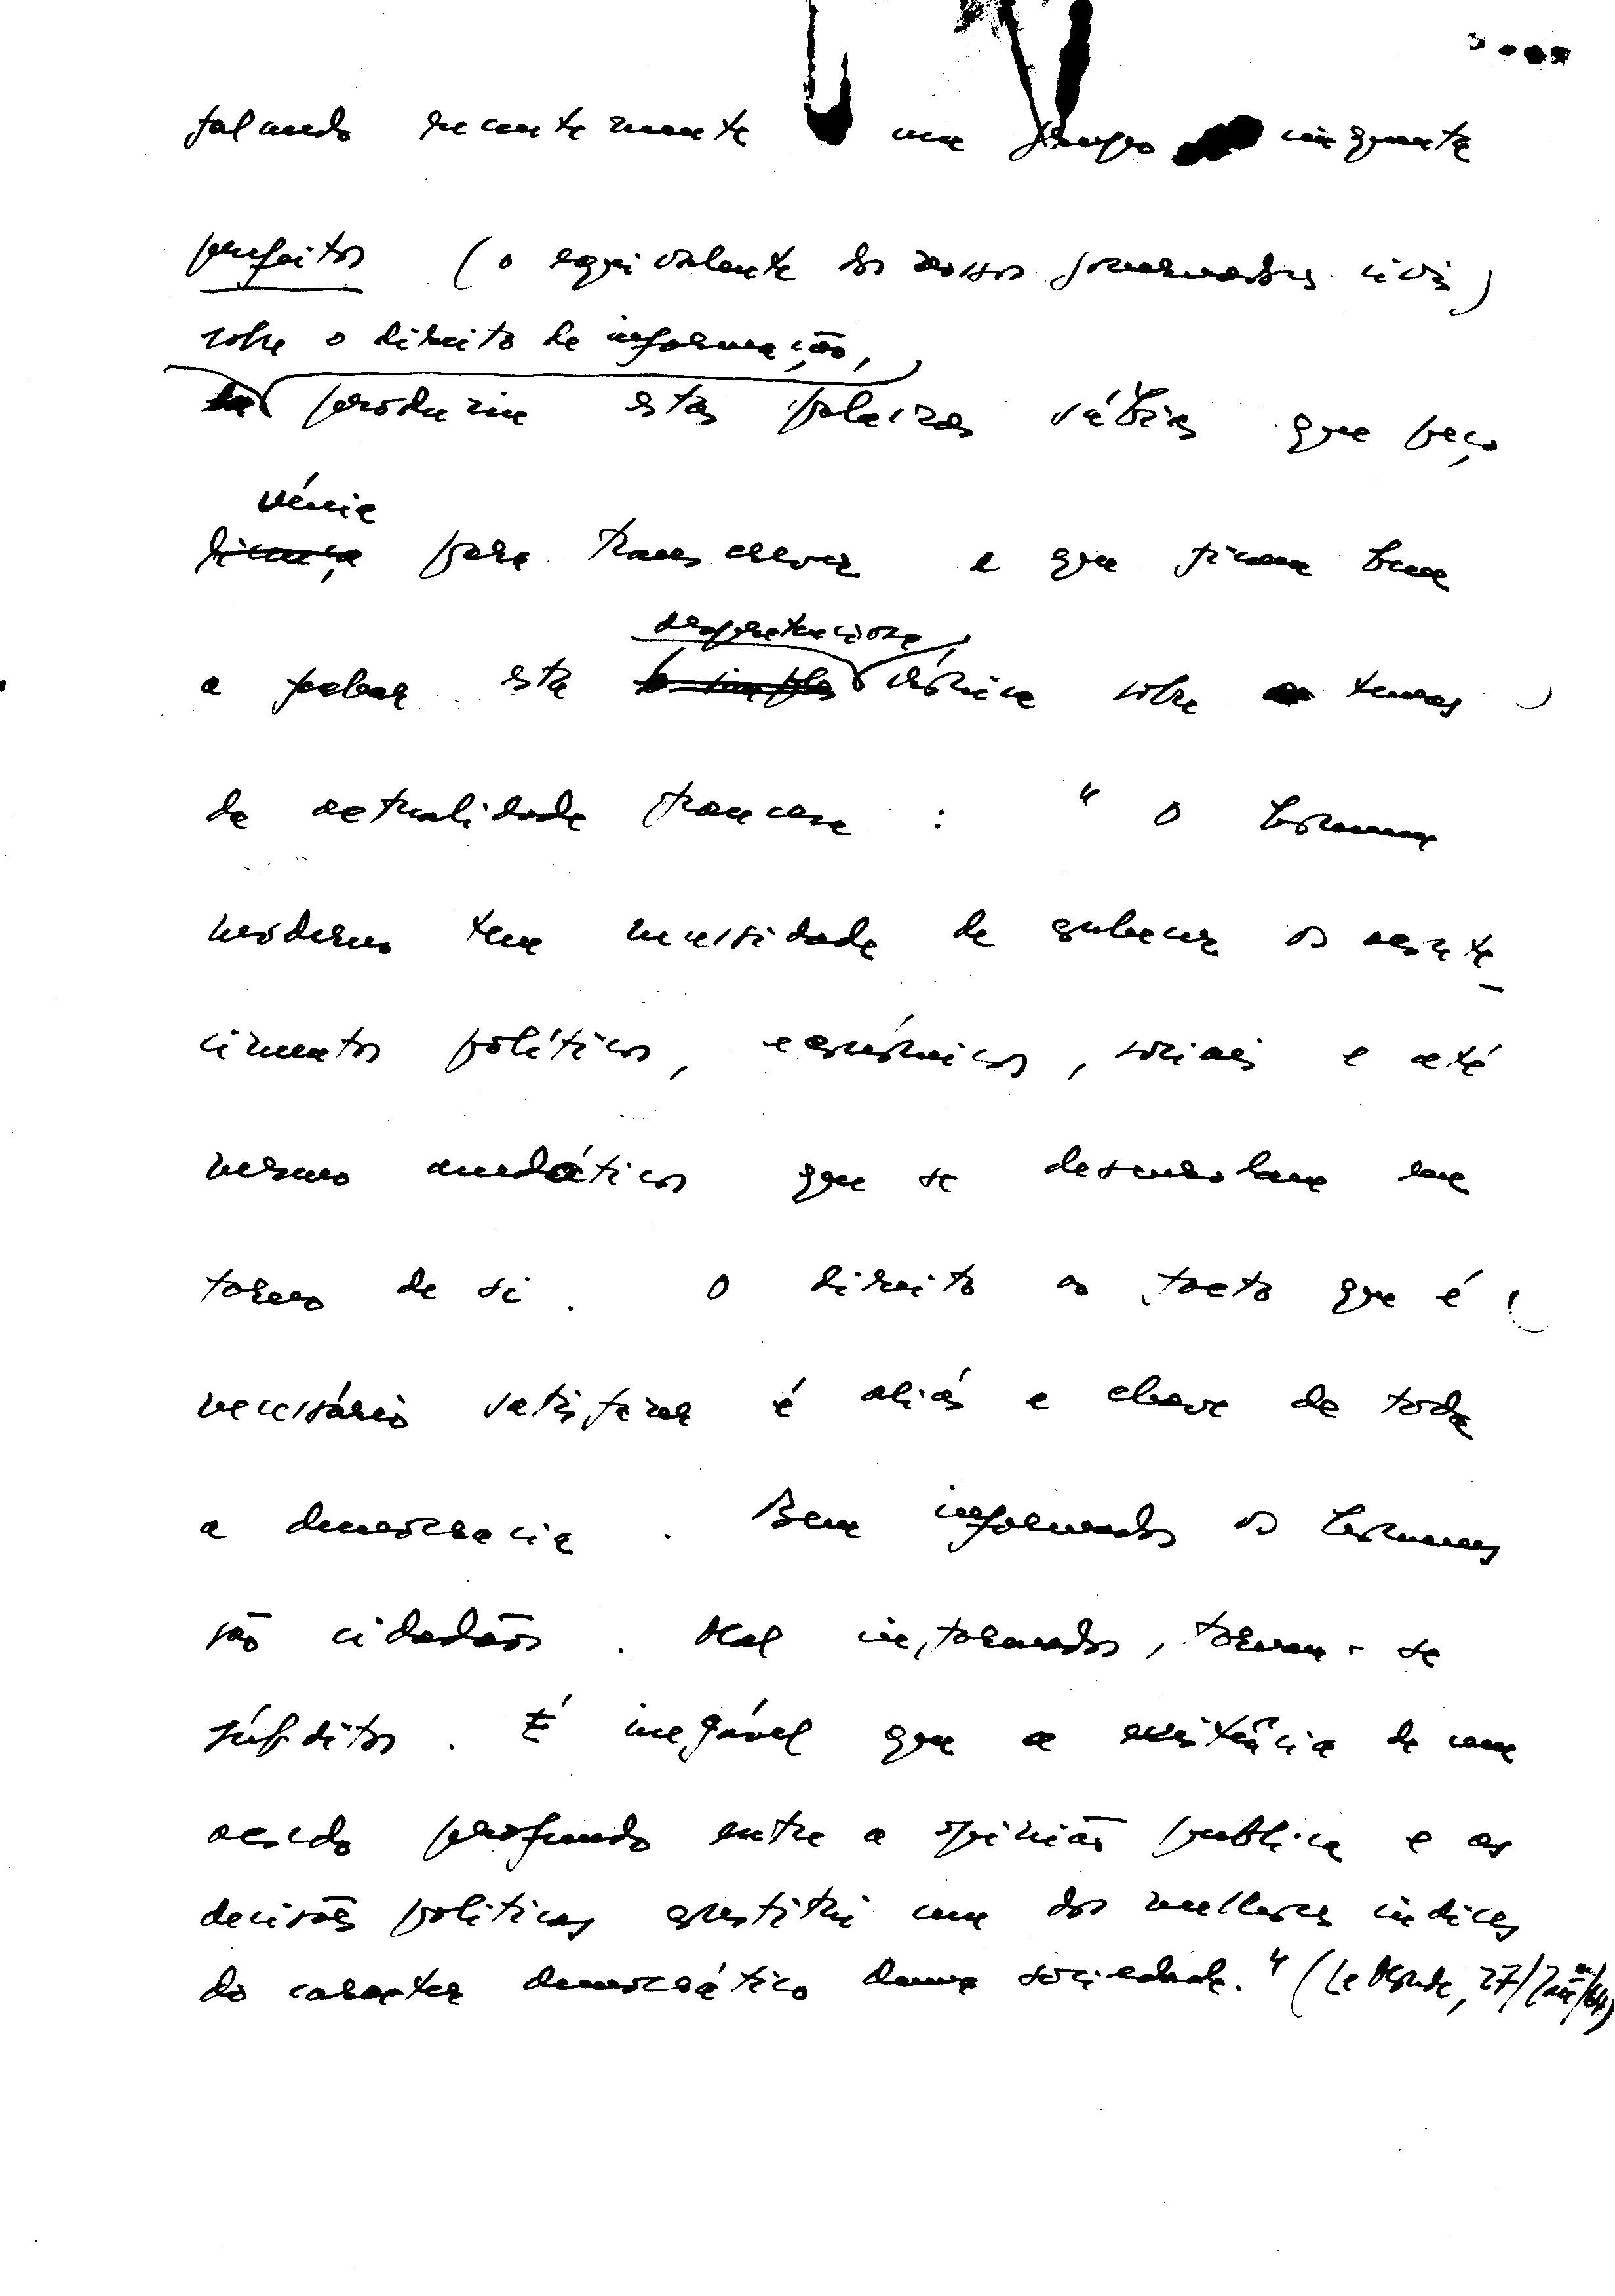 falando recentemente a um grupo cinquenta
prefeitos (o equivalente dos nossos governadores civis)
sobre o direito de informação,
produziu estas palavras sábias que peço
vénia
licença para transcrever e que ficam bem
despretenciosa
a fechar esta crónica sobre temas
da actualidade francesa : " O homem
moderno tem necessidade de conhecer os aconte_
cimentos políticos, económicos, sociais e até
mesmo anedóticos que se desenrolam em
torno de si. O direito ao facto que é
necessário satisfazer é aliás a chave de toda
a democracia. Bem informados os homens
são cidadãos. Mal informados, tornam-se
súbditos. É inegável que a existência de um
acordo profundo entre a opinião publica e as
decisões politicas constitui um dos melhores indices
do caracter democrático duma sociedade." (Le Monde, 27/